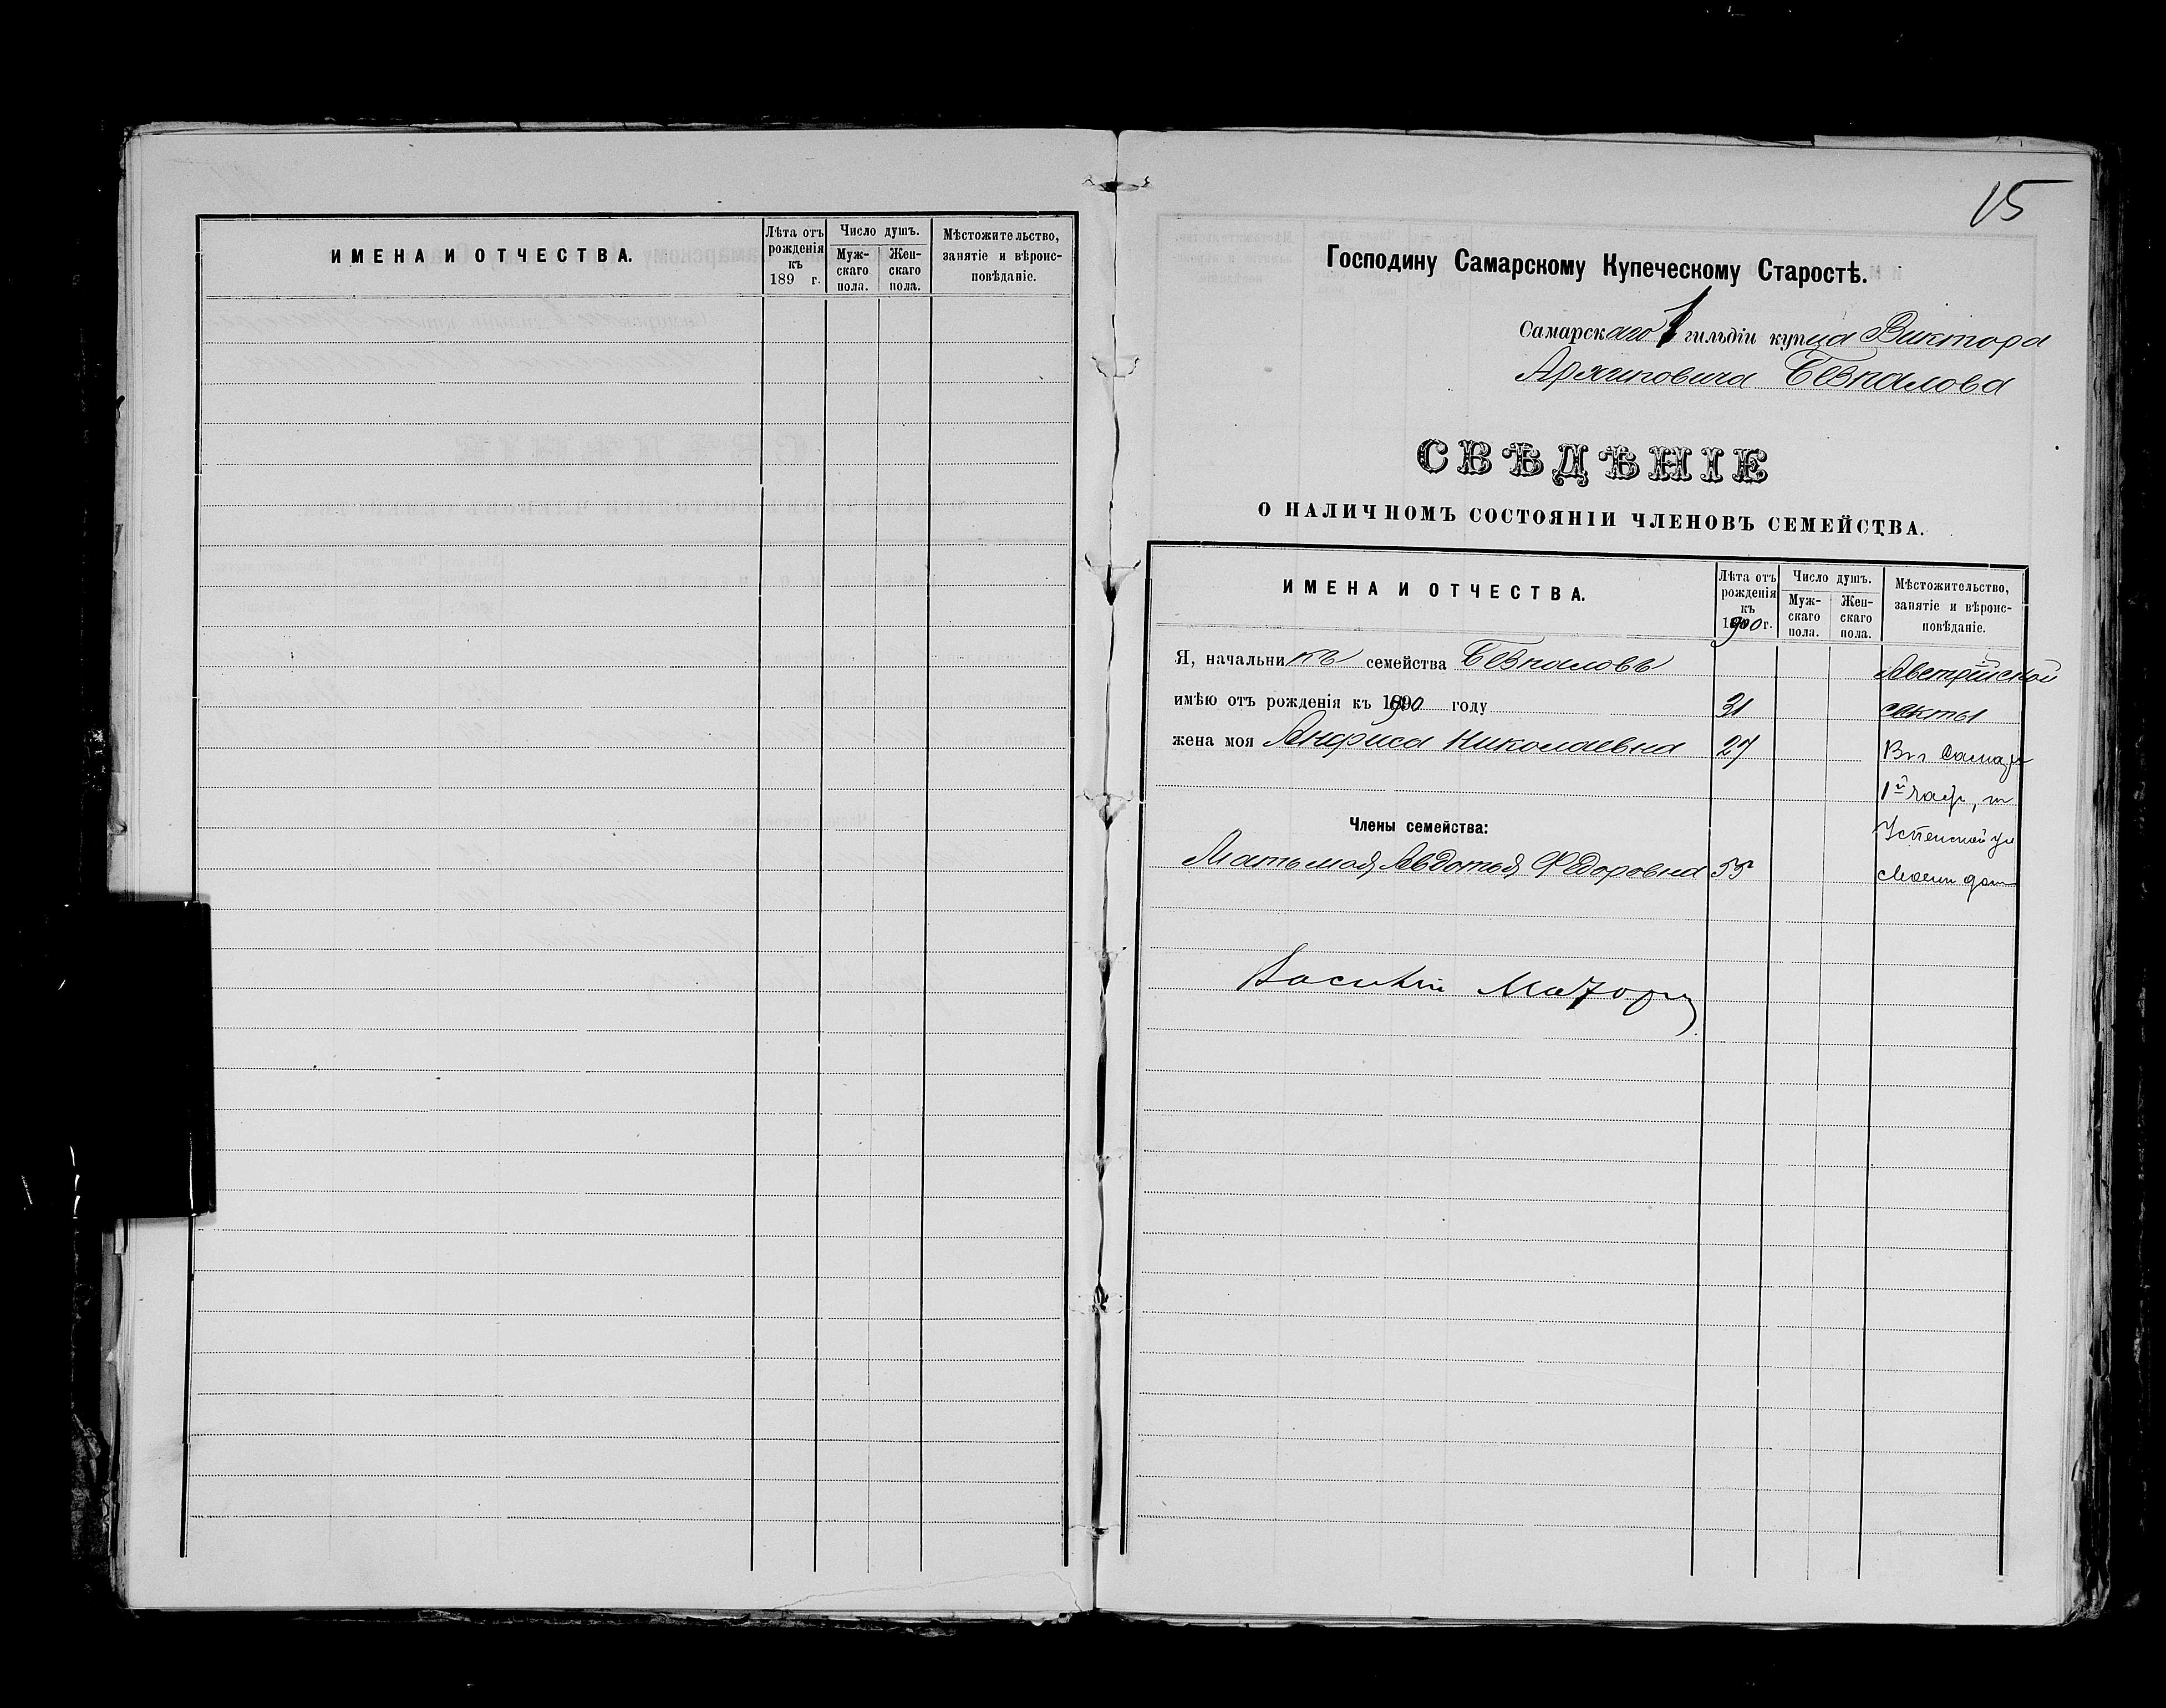 ИМЕНА И ОТЧЕСТВА.
Лѣта отъ рожденія къ 189 г.
Число душъ.
Мужскаго пола.
Женскаго пола.
Мѣстожительство, занятіе и вѣроисповѣданіе.
15
Господину Самарскому Купеческому Старостѣ.
Самарскаго 1 гильдіи купца Виктора
Архиповича Безпалова
СВѢДѢНІЕ
О НАЛИЧНОМЪ СОСТОЯНІИ ЧЛЕНОВЪ СЕМЕЙСТВА.
ИМЕНА И ОТЧЕСТВА.
Лѣта отъ рожденія къ 1900 г.
Число душъ.
Мужскаго пола.
Женскаго пола.
Мѣстожительство, занятіе и вѣроисповѣданіе.
Я, начальникъ семейства Безпаловъ Австрійской
имѣю отъ рожденія къ 1900 году 31 секты
жена моя Анфиса Николаевна 27 Самар
1й
Члены семейства: Успенской ул
Мать моя Авдотья Федоровна 55 дом
Василій